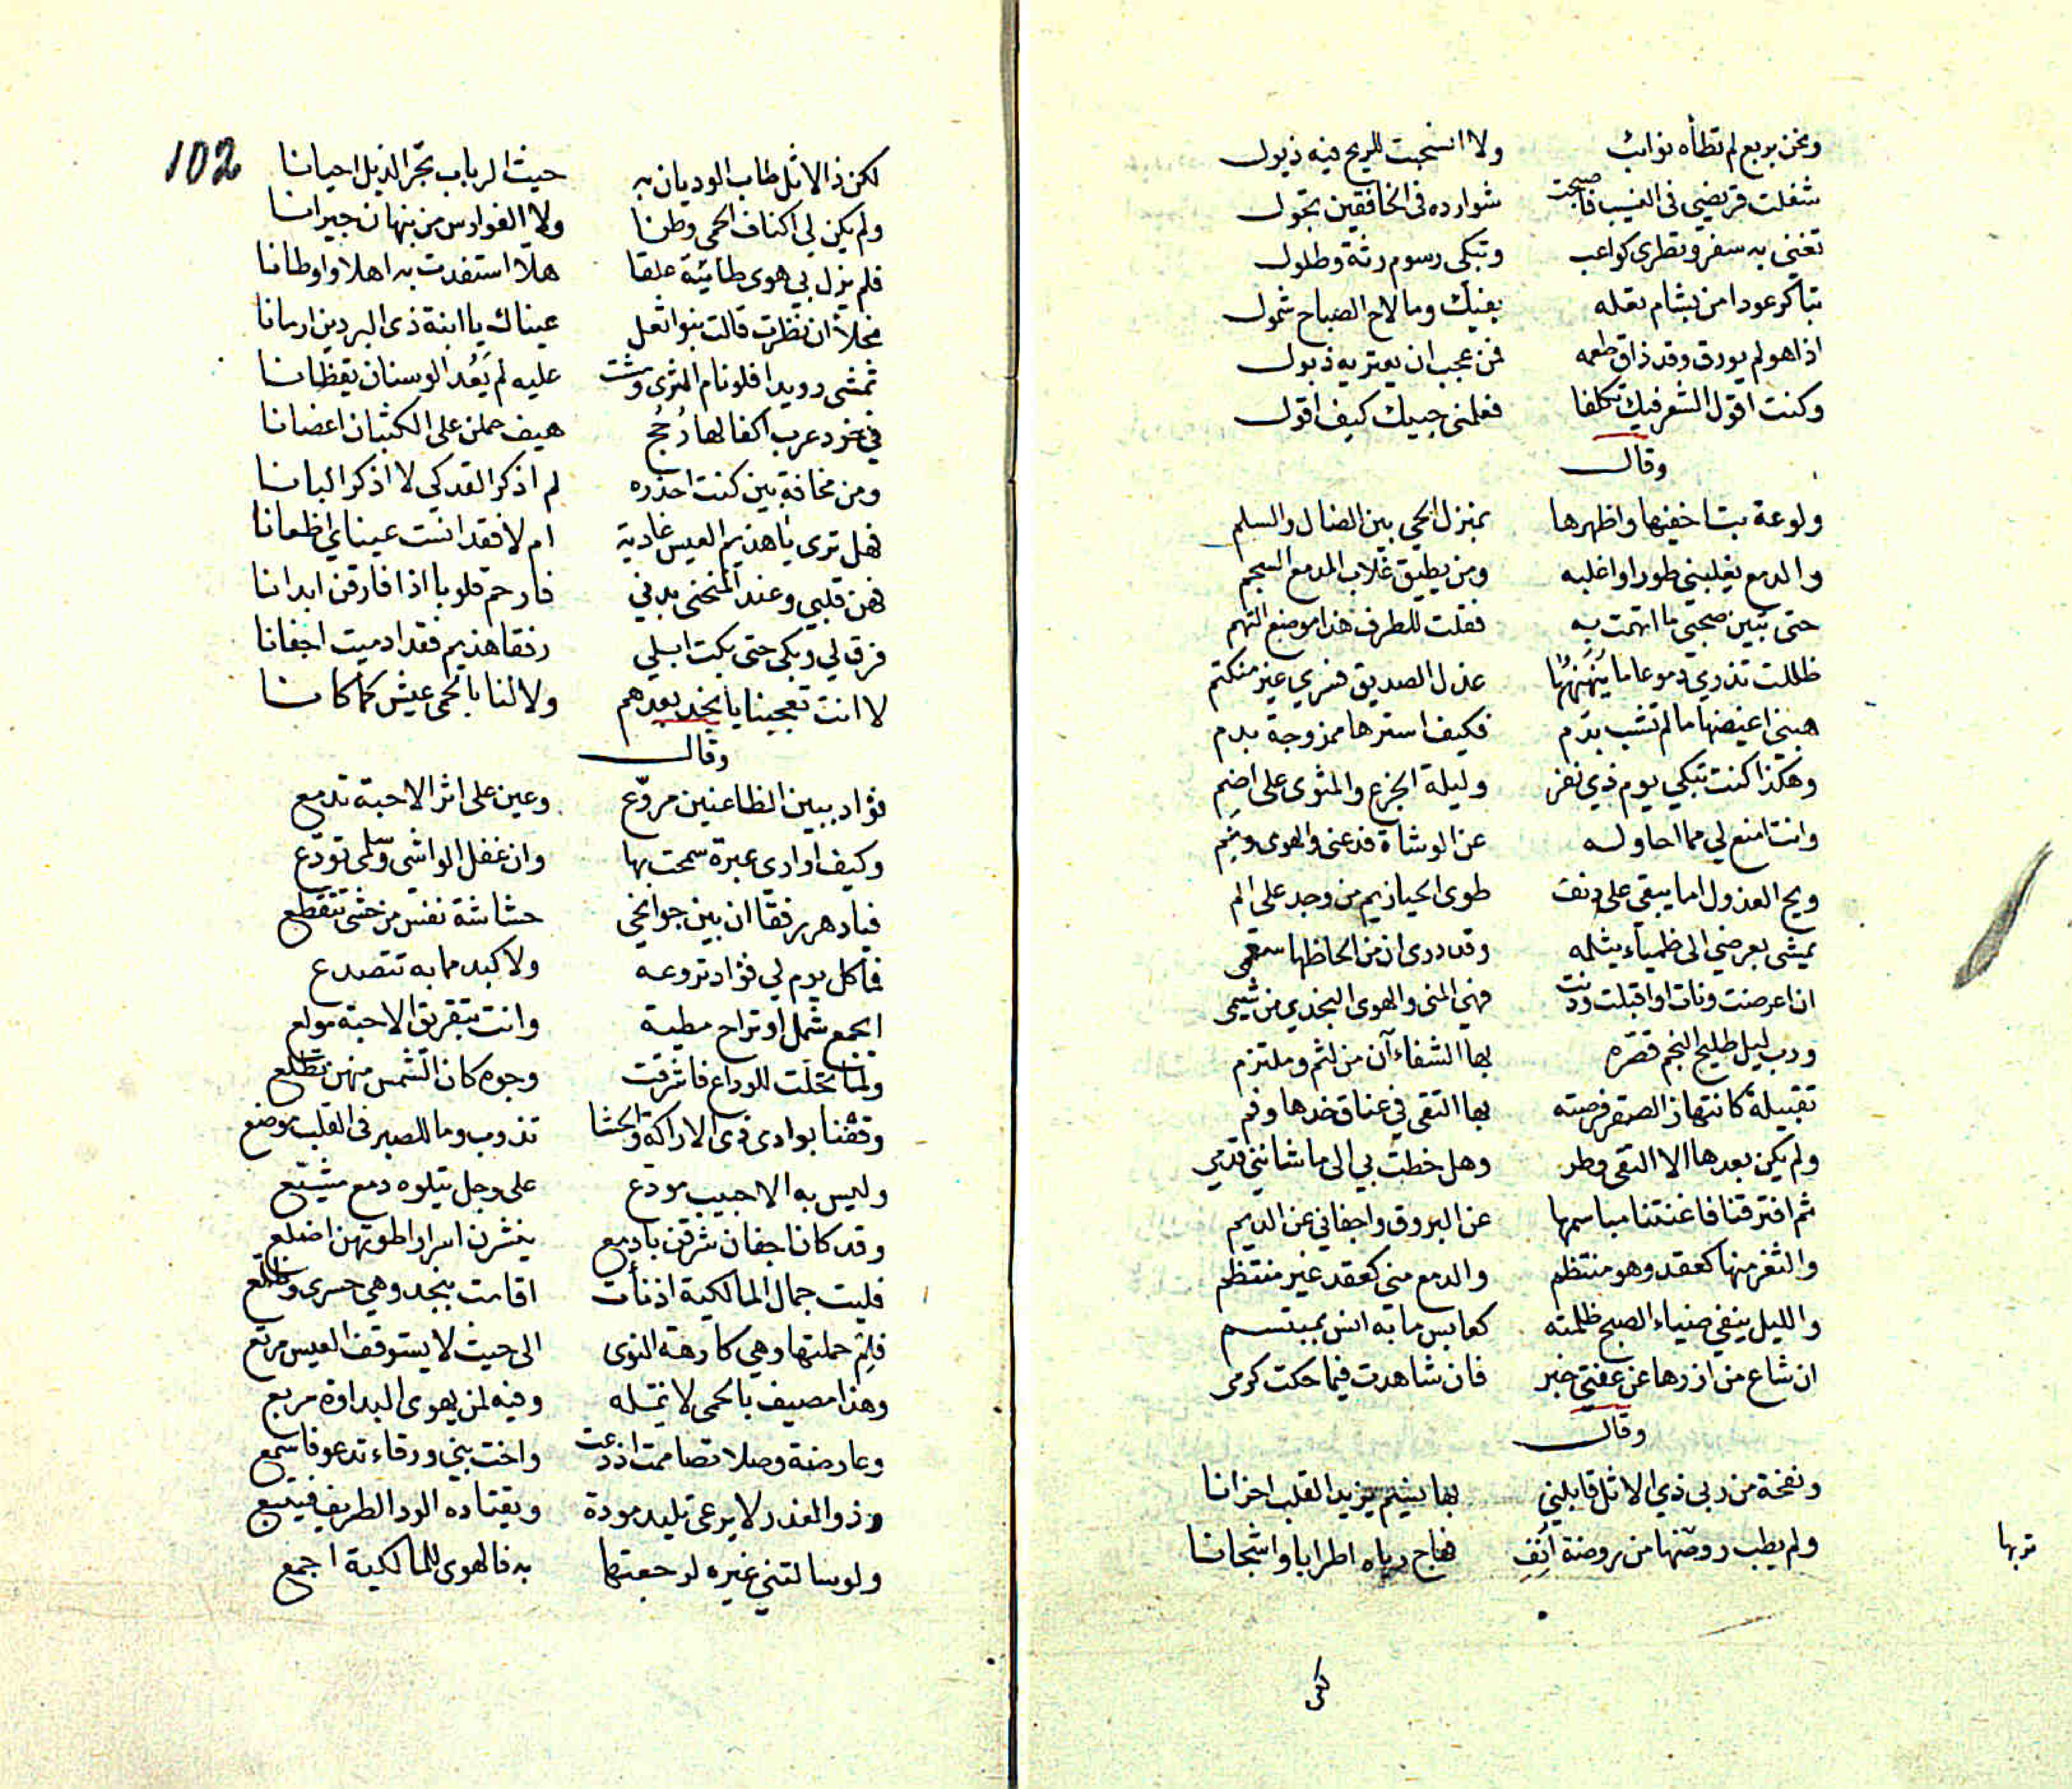 ونحن بربع لم تطأه نوائب ولا انسحبت للريح فيه ذيول
شغلت قريضي في النسيب فاصبحت شوارده في الخافقين تجول
تغني به سفر وتطرى كواعب وتبكى رسوم رثة وطلول
تباكر عودا من بشام تعله بفيك وما لاح الصباح شمول
اذا هو لم يورق وقد ذاق طعمه فمن عجب ان يعتريه ذبول
وكنت اقول الشعر فيك تكلفا فعلمني حبيك كيف اقول
وقال
ولوعة بت اخفيها واظهرها بمنزل الحي بين الضال والسلم
والدمع يغلبني طورا واغلبه ومن يطيق غلاب المدمع السجم
حتى تبين صحبي ما اتهمت به فقلت للطرف هذا موضع التهم
ظللت تذري دموعا ما ينهنهها عذل الصديق فسري غير منكتم
هبني اغيضها ما لم تشب بدم فكيف استرها ممزوجة بدم
وهكذا كنت تبكي يوم ذي نفر وليلة الجزع والمثوى على اضم
وانت امنع لي مما احاوله عن الوشاة فدعني والهوى ونم
ويح العذول اما يبقي على دنف طوى الحيازيم من وجد على الم
يمشى بعرضي الى ظمياء يثلمه وقد درى ان من الحاظها سقمى
ان اعرضت ونات او اقبلت ودنت فهي المنى والهوى النجدي من شيمى
ورب ليل طليح النجم قصره بها الشفاء آن من لثم وملتزم
تقبيلة كانتهاز الصقر فرصته بها التقى في عناق خدها وفم
ولم يكن بعدها الا التقى وطر وهل خطت بي الى ما شانني قدمي
ثم افترقنا فاغنتنا مباسمها عن البروق واجفاني عن الديم
والثغر منها كعقد وهو منتظم والدمع مني كعقد غير منتظم
والليل ينفي ضياء الصبح ظلمته كعابس ما به انس بمبتسم
ان شاع من ازرها عن عفتي خبر فان شاهدت فيما حكت كرمى
وقال
ونفحة من ربى ذي الاثل قابلني بها نسيم يزيد القلب احزانا
ولم يطب روضها من روضة انف فهاج رياه اطرابا واشجانا
تربها
لكن
102
لكن ذا الاثل طاب الوديان به حيث الرباب تجر الذيل احيانا
ولم يكن لي اكناف الحمى وطنا ولا الفوارس من بنهان جيرانا
فلم يزل بي هوى طائية علقا هلا استفدت به اهلا واوطانا
نجلا ان نظرت قالت بنو اثعل عيناك يا ابنة ذي البردين ارمانا
تمشى رويدا فلو نام الثرى ومشت عليه لم يعد الوسنان يقظانا
في خرد عرب اكفالها رجح هيف حملن على الكثبان اغصانا
ومن مخافة بين كنت احذره لم اذكر القد كي لا اذكر البانا
فهل ترى يا هذيم العيس غادية ام لا فقد انست عيناي اظعانا
فهن قلبي وعند المنحنى بدني فارحم قلوبا اذا فارقن ابدانا
فرق لي وبكى حتى بكت ابلي رفقا هذيم فقد ادميت اجفانا
لا انت تعجبنا يا نجد بعدهم ولا لنا بالحمى عيش كما كانا
وقال
فؤاد ببين الظاعنين مروع وعين على اثر الاحبة تدمع
وكيف اوارى عبرة سمحت بها وان غفل الواشى وسلمى تودع
فيا دهر رفقا ان بين جوانحي حشاشة نفس من حشى تتقطع
فما كل يوم لي فؤاد تروعه ولا كبد مما به تتصدع
ايجمع شمل او تراح مطية وانت بتفريق الاحبة مولع
ولما تجلت للوداع فاشرقت وجوه كان الشمس منهن تطلع
وقفنا بوادى ذى الاراكة والحشا تذوب وما للصبر في القلب موضع
وليس به الا حبيب مودع على وجل يتلوه دمع مشيع
وقد كان اجفان شرقن بادمع ينشرن اسرارا طوتهن اضلع
فليت جمال المالكية اذ نأت اقامت بنجد وهي حسرى وظلع
فلم حملتها وهي كارهة النوى الى حيث لا يستوقف العيس مرتع
وهذا مصيف بالحمى لا تمله وفيه لمن يهوى البداوة مربع
وعارضة وصلا تصاممت اذ دعت واخت بني ورقاء تدعو فاسمع
وذو الغدر لا يرعى تليد مودة ويقتاده الود الطريف فيتبع
ولو سالتني غيره لرجعتها به فالهوى للمالكية اجمع